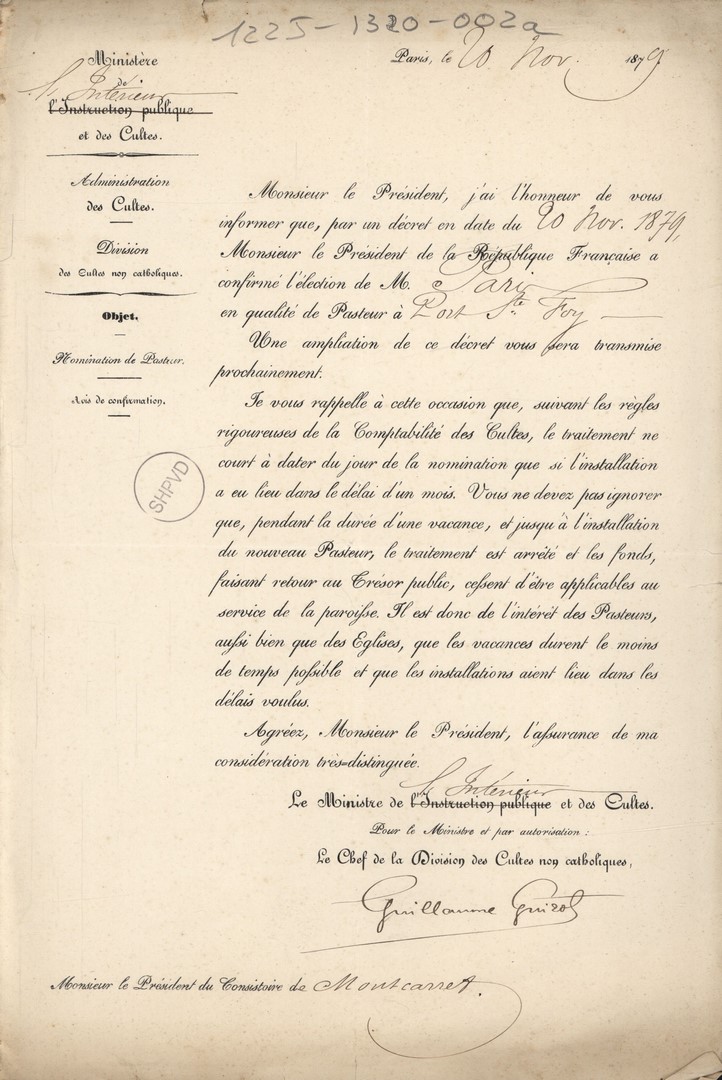 1225-1320-002a
Ministère
de
l'Intérieur
l'Instruction publique
et des Cultes.
Paris, le 20 Nov. 1879
Administration
des Cultes.
Division
des Cultes non catholiques.
Objet.
Nomination de Pasteur.
Avis de confirmation.
SHPVD
Monsieur le Président, j'ai l'honneur de vous
informer que, par un décret en date du 20 Nov. 1879,
Monsieur le Président de la République Française a
confirmé l'élection de M. Paris
en qualité de Pasteur à Port Ste Foy
Une ampliation de ce décret vous sera transmise
prochainement.
Je vous rappelle à cette occasion que, suivant les règles
rigoureuses de la Comptabilité des Cultes, le traitement ne
court à dater du jour de la nomination que si l'installation
a eu lieu dans le délai d'un mois. Vous ne devez pas ignorer
que, pendant la durée d'une vacance, et jusqu'à l'installation
du nouveau Pasteur, le traitement est arrêté et les fonds,
faisant retour au Trésor public, cessent d'être applicables au
service de la paroisse. Il est donc de l'intérêt des Pasteurs,
aussi bien que des Eglises, que les vacances durent le moins
de temps possible et que les installations aient lieu dans les
délais voulus.
Agréez, Monsieur le Président, l'assurance de ma
considération très-distinguée.
l'Intérieur
Le Ministre de l'Instruction publique et des Cultes.
Pour le Ministre et par autorisation :
Le Chef de la Division des Cultes non catholiques,
Guillaume Guizot
Monsieur le Président du Consistoire de Montcarret.